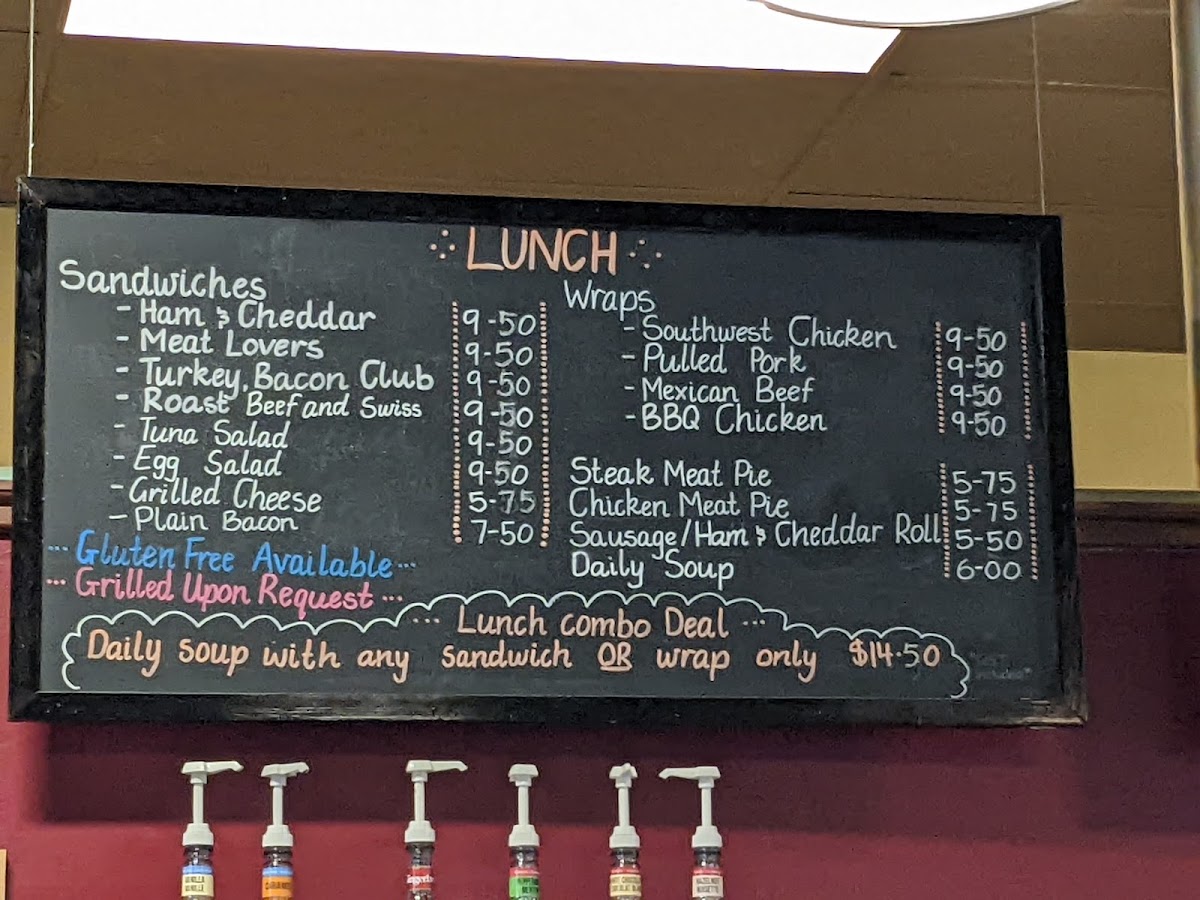 LUNCH
Sandwiches
- Ham & Cheddar 9-50
- Meat Lovers 9-50
- Turkey, Bacon Club 9-50
- Roast Beef and Swiss 9-50
- Tuna Salad 9-50
- Egg Salad 9-50
- Grilled Cheese 5-75
- Plain Bacon 7-50
... Gluten Free Available ...
... Grilled Upon Request ...
Wraps
- Southwest Chicken 9-50
- Pulled Pork 9-50
- Mexican Beef 9-50
- BBQ Chicken 9-50
Steak Meat Pie 5-75
Chicken Meat Pie 5-75
Sausage/Ham & Cheddar Roll 5-50
Daily Soup 6-00
... Lunch combo Deal ...
Daily soup with any sandwich OR wrap only $14.50